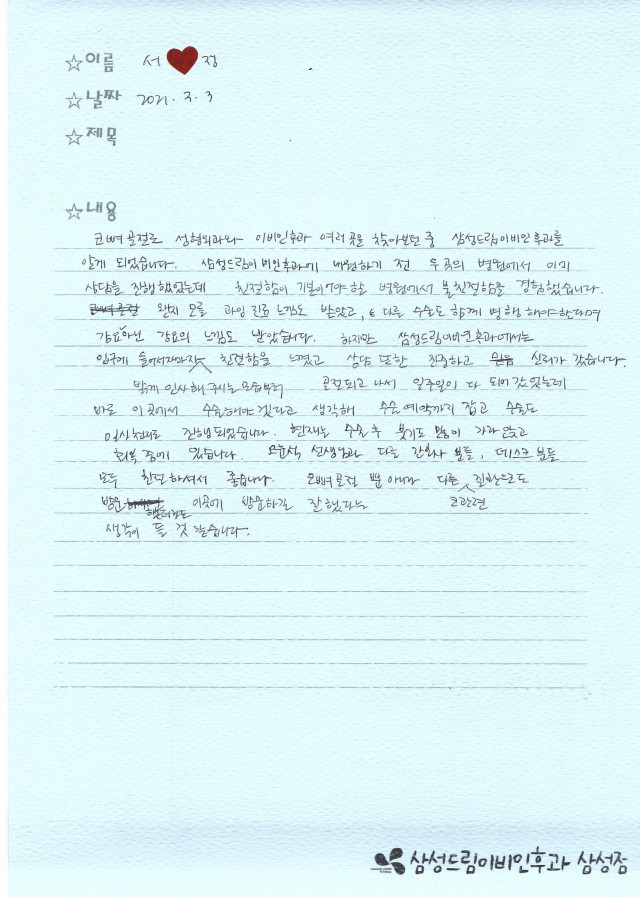 ☆이름 서♥정
☆날짜 2021. 3. 3
☆제목
☆내용
코뼈 골절로 성형외과와 이비인후과 여러 곳을 찾아보던 중 삼성드림이비인후과를
알게 되었습니다. 삼성드림이비인후과에 내원하기 전 두곳의 병원에서 이미
상담을 진행했었는데 친절함이 기본이어야 할 병원에서 불친절함을 경험했습니다.
왠지 모를 과잉 진료 느낌도 받았고, 다른 수술도 함께 병행 해야한다며
강요아닌 강요의 느낌도 받았습니다. 하지만 삼성드림이비인후과에서는
입구에 들어서자마자 친절함을 느꼈고 상담 또한 친절하고 신뢰가 갔습니다.
밝게 인사해 주시는 모습부터 골절되고 나서 일주일이 다 되어 갔었는데
바로 이 곳에서 수술해야겠다고 생각해 수술 예약까지 잡고 수술도
일사천리로 진행되었습니다. 현재는 수술 후 붓기도 많이 가라앉고
회복 중에 있습니다. 선생님과 다른 간호사 분들, 데스크 분들
모두 친절하셔서 좋습니다. 코뼈골절 뿐 아니라 다른 질환으로도
방문 이곳에 방문하길 잘했다는 코관련
했더라도
생각이 들 것 같습니다.
삼성드림이비인후과 삼성점